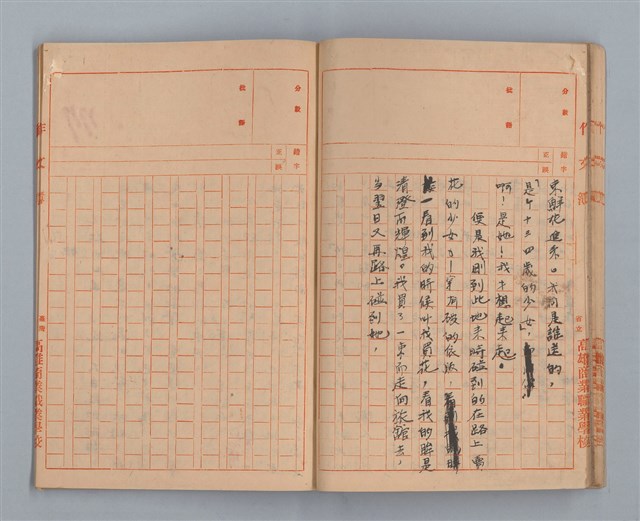 分數
批
錯字
正誤
作文
高雄商業職業學校
束鮮花進來。我問是誰送的,
是個十三四歲的少女,
啊!是她!我才想起來起。
便是我剛到此地來時碰到的在路上賣
花的少女,!穿着破的依法,
一看到我的時候叫我買花,看我的眸是
清澄而輝煌。我買了一束而走向旅館去,
当翌日又再路上碰到她,
分數
批
錯字
正誤
作文
高雄商業職業學校